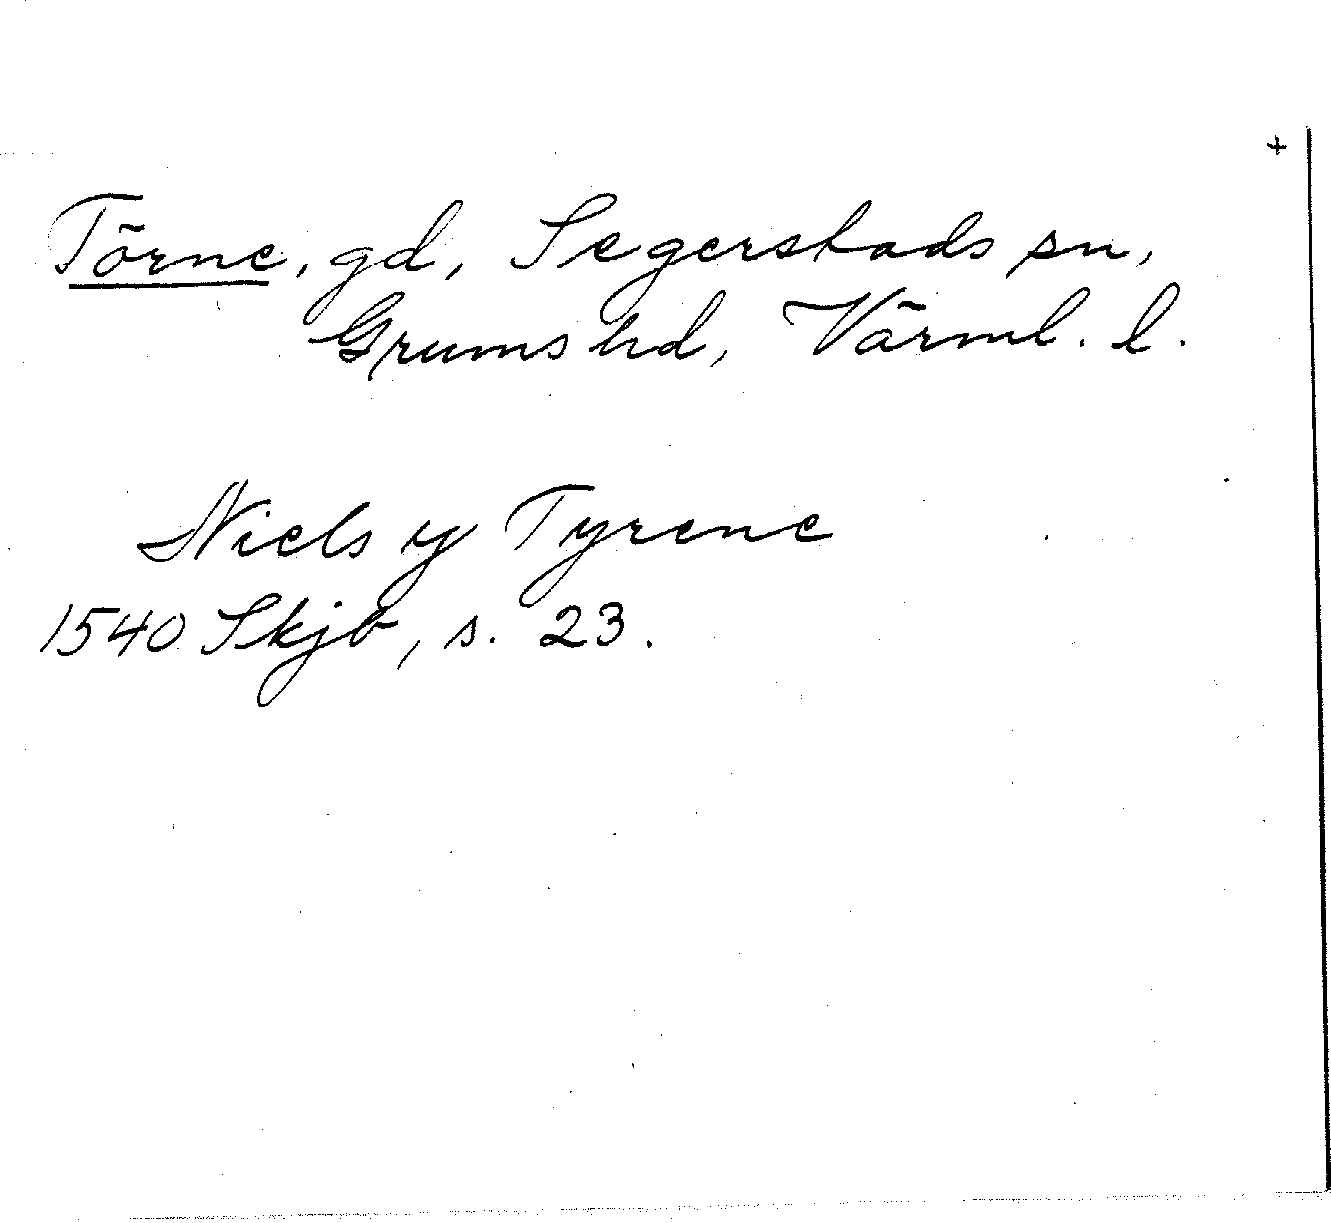 +
Törne, gd, Segerstads sn,
Grums hd, Värml. l.
Niels y Tyrene
1540 Skjb, s. 23.